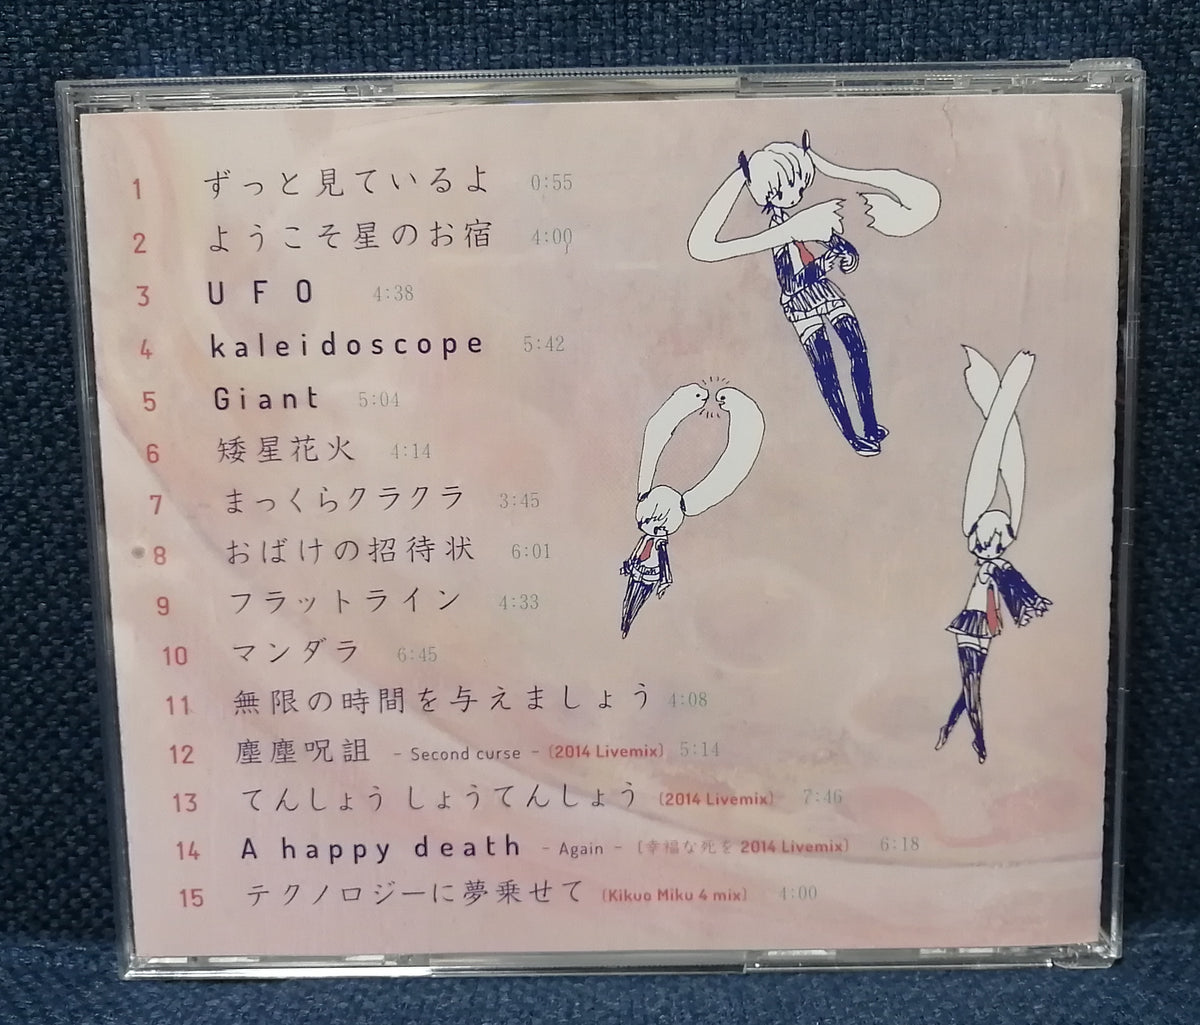 1 ずっと見ているよ 0:55
2 ようこそ星のお宿 4:00
3 UFO 4:38
4 kaleidoscope 5:42
5 Giant 5:04
6 矮星花火 4:14
7 まっくらクラクラ 3:45
8 おばけの招待状 6:01
9 フラットライン 4:33
10 マンダラ 6:45
11 無限の時間を与えましょう 4:08
12 塵塵呪詛 - Second curse - (2014 Livemix) 5:14
13 てんしょう しょうてんしょう (2014 Livemix) 7:46
14 A happy death - Again - (幸福な死を 2014 Livemix) 6:18
15 テクノロジーに夢乗せて (Kikuo Miku 4 mix) 4:00